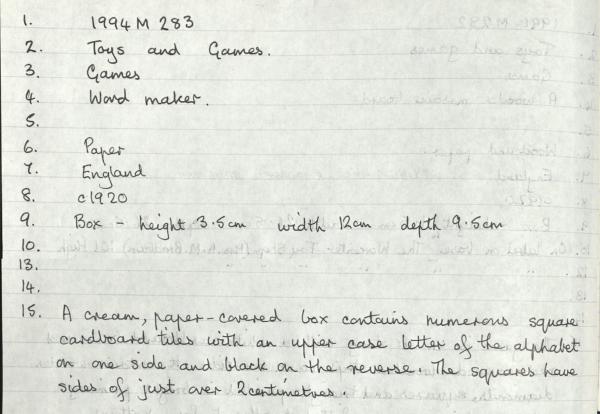 1. 1994 M 283
2. Toys and Games.
3. Games
4. Word maker.
5.
6. Paper
7. England
8. c1920
9. Box - height 3.5cm width 12cm depth 9.5cm
10.
13.
14.
15. A cream, paper-covered box contains numerous square
cardboard tiles with an upper case letter of the alphabet
on one side and black on the reverse. The squares have
sides of just over 2centimetres.